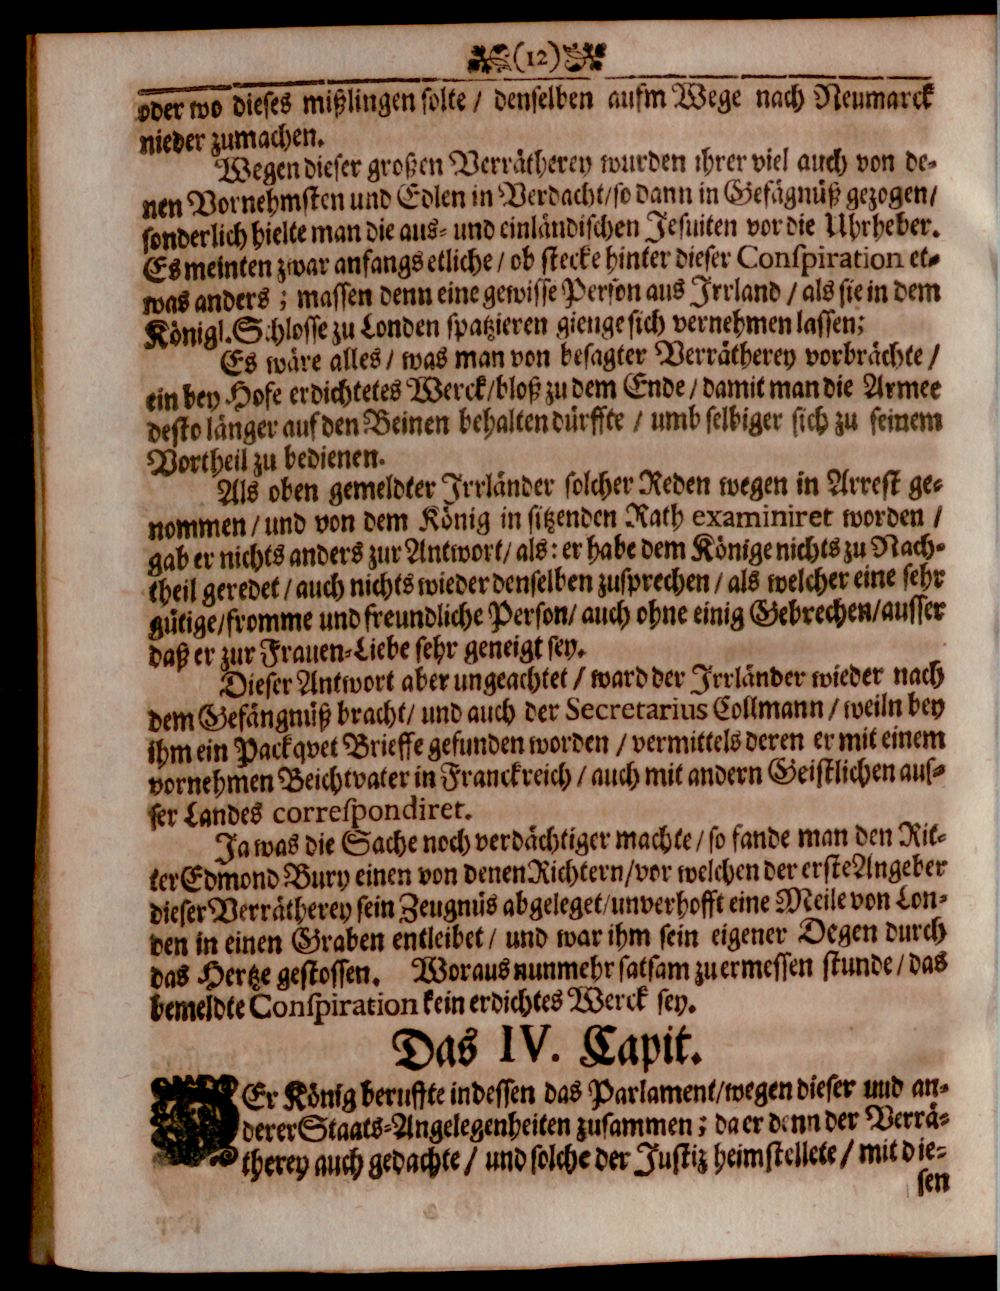 (12)
oder wo dieses mißlingen solte / denselben aufm Wege nach Neumarck
nieder zumachen.
Wegen dieser großen Verrätherey wurden ihrer viel auch von de-
nen Vornehmsten und Edlen in Verdacht / so dann in Gefägnüß gezogen /
sonderlich hielte man die aus- und einländischen Jesuiten vor die Uhrheber.
Es meinten zwar anfangs etliche / ob stecke hinter dieser Conspiration et-
was anders ; massen denn eine gewisse Person aus Irrland / als sie in dem
Königl. Schlosse zu Londen spatzieren gienge sich vernehmen lassen;
Es wäre alles / was man von besagter Verrätherey vorbrächte /
ein bey Hofe erdichtetes Werck / bloß zu dem Ende / damit man die Armee
desto länger auf den Beinen behalten dürffte / umb selbiger sich zu seinem
Vortheil zu bedienen.
Als oben gemeldter Irrländer solcher Reden wegen in Arrest ge-
nommen / und von dem König in sitzenden Rath examiniret worden /
gab er nichts anders zur Antwort / als: er habe dem Könige nichts zu Nach-
theil geredet / auch nichts wieder denselben zusprechen / als welcher eine sehr
gütige / fromme und freundliche Person / auch ohne einig Gebrechen / ausser
daß er zur Frauen-Liebe sehr geneigt sey.
Dieser Antwort aber ungeachtet / ward der Irrländer wieder nach
dem Gefängnüß bracht / und auch der Secretarius Collmann / weiln bey
ihm ein Packqvet Brieffe gefunden worden / vermittels deren er mit einem
vornehmen Beichtvater in Franckreich / auch mit andern Geistlichen aus-
ser Landes correspondiret.
Ja was die Sache noch verdächtiger machte / so fande man den Rit-
ter Edmond Bury einen von denen Richtern / vor welchen der erste Angeber
dieser Verrätherey sein Zeugnüs abgeleget / unverhofft eine Meile von Lon-
den in einen Graben entleibet / und war ihm sein eigener Degen durch
das Hertze gestossen. Woraus nunmehr satsam zu ermessen stunde / das
bemeldte Conspiration kein erdichtes Werck sey.
Das IV. Capit.
DEr König beruffte indessen das Parlament / wegen dieser und an-
derer Staats-Angelegenheiten zusammen ; da er denn der Verrä-
therey auch gedachte / und solche der Justiz heimstellete / mit die-
sen